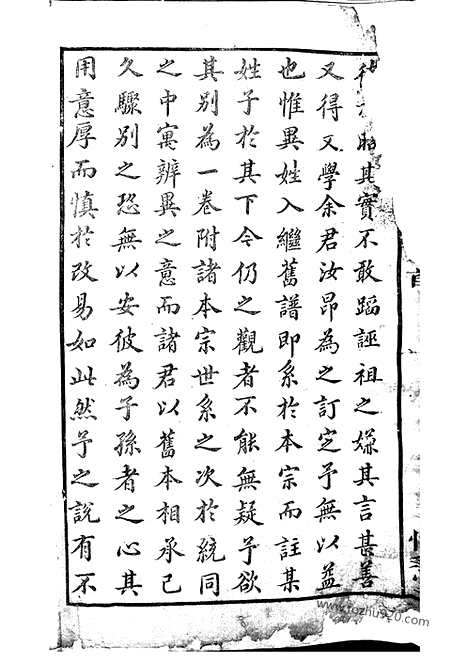 其實不敢蹈誣祖之嫌其言甚善
又得文學余君汝昂為之訂定予無以益
也惟異姓入繼舊譜即系於本宗而註某
姓子於其下今仍之觀者不能無疑予欲
其別為一卷附諸本宗世系之次於統同
之中寓辨異之意而諸君以舊本相承已
久驟別之恐無以安彼為子孫者之心其
用意厚而慎於改易如此然予之說有不
www.fozhu920.com